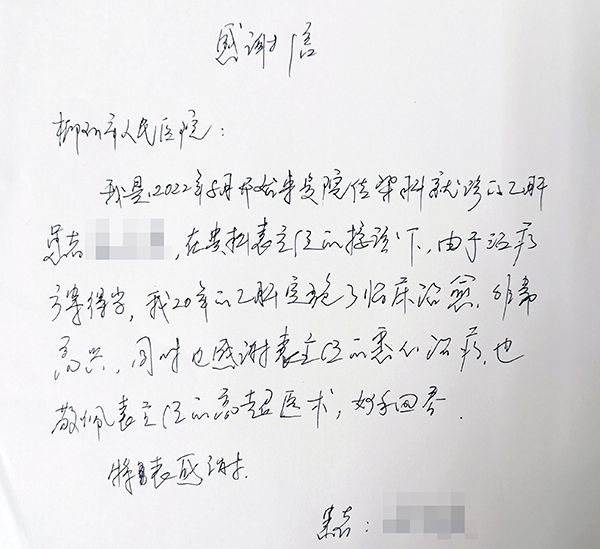 感谢信
柳州市人民医院：
我是2022年5月开始来贵院传染科就诊的乙肝
患者，在贵科袁主任的接诊下，由于治疗
方案得当，我20年的乙肝实现了临床治愈，非常
高兴，同时也感谢袁主任的悉心治疗，也
敬佩袁主任的高超医术，妙手回春。
特表感谢
患者：